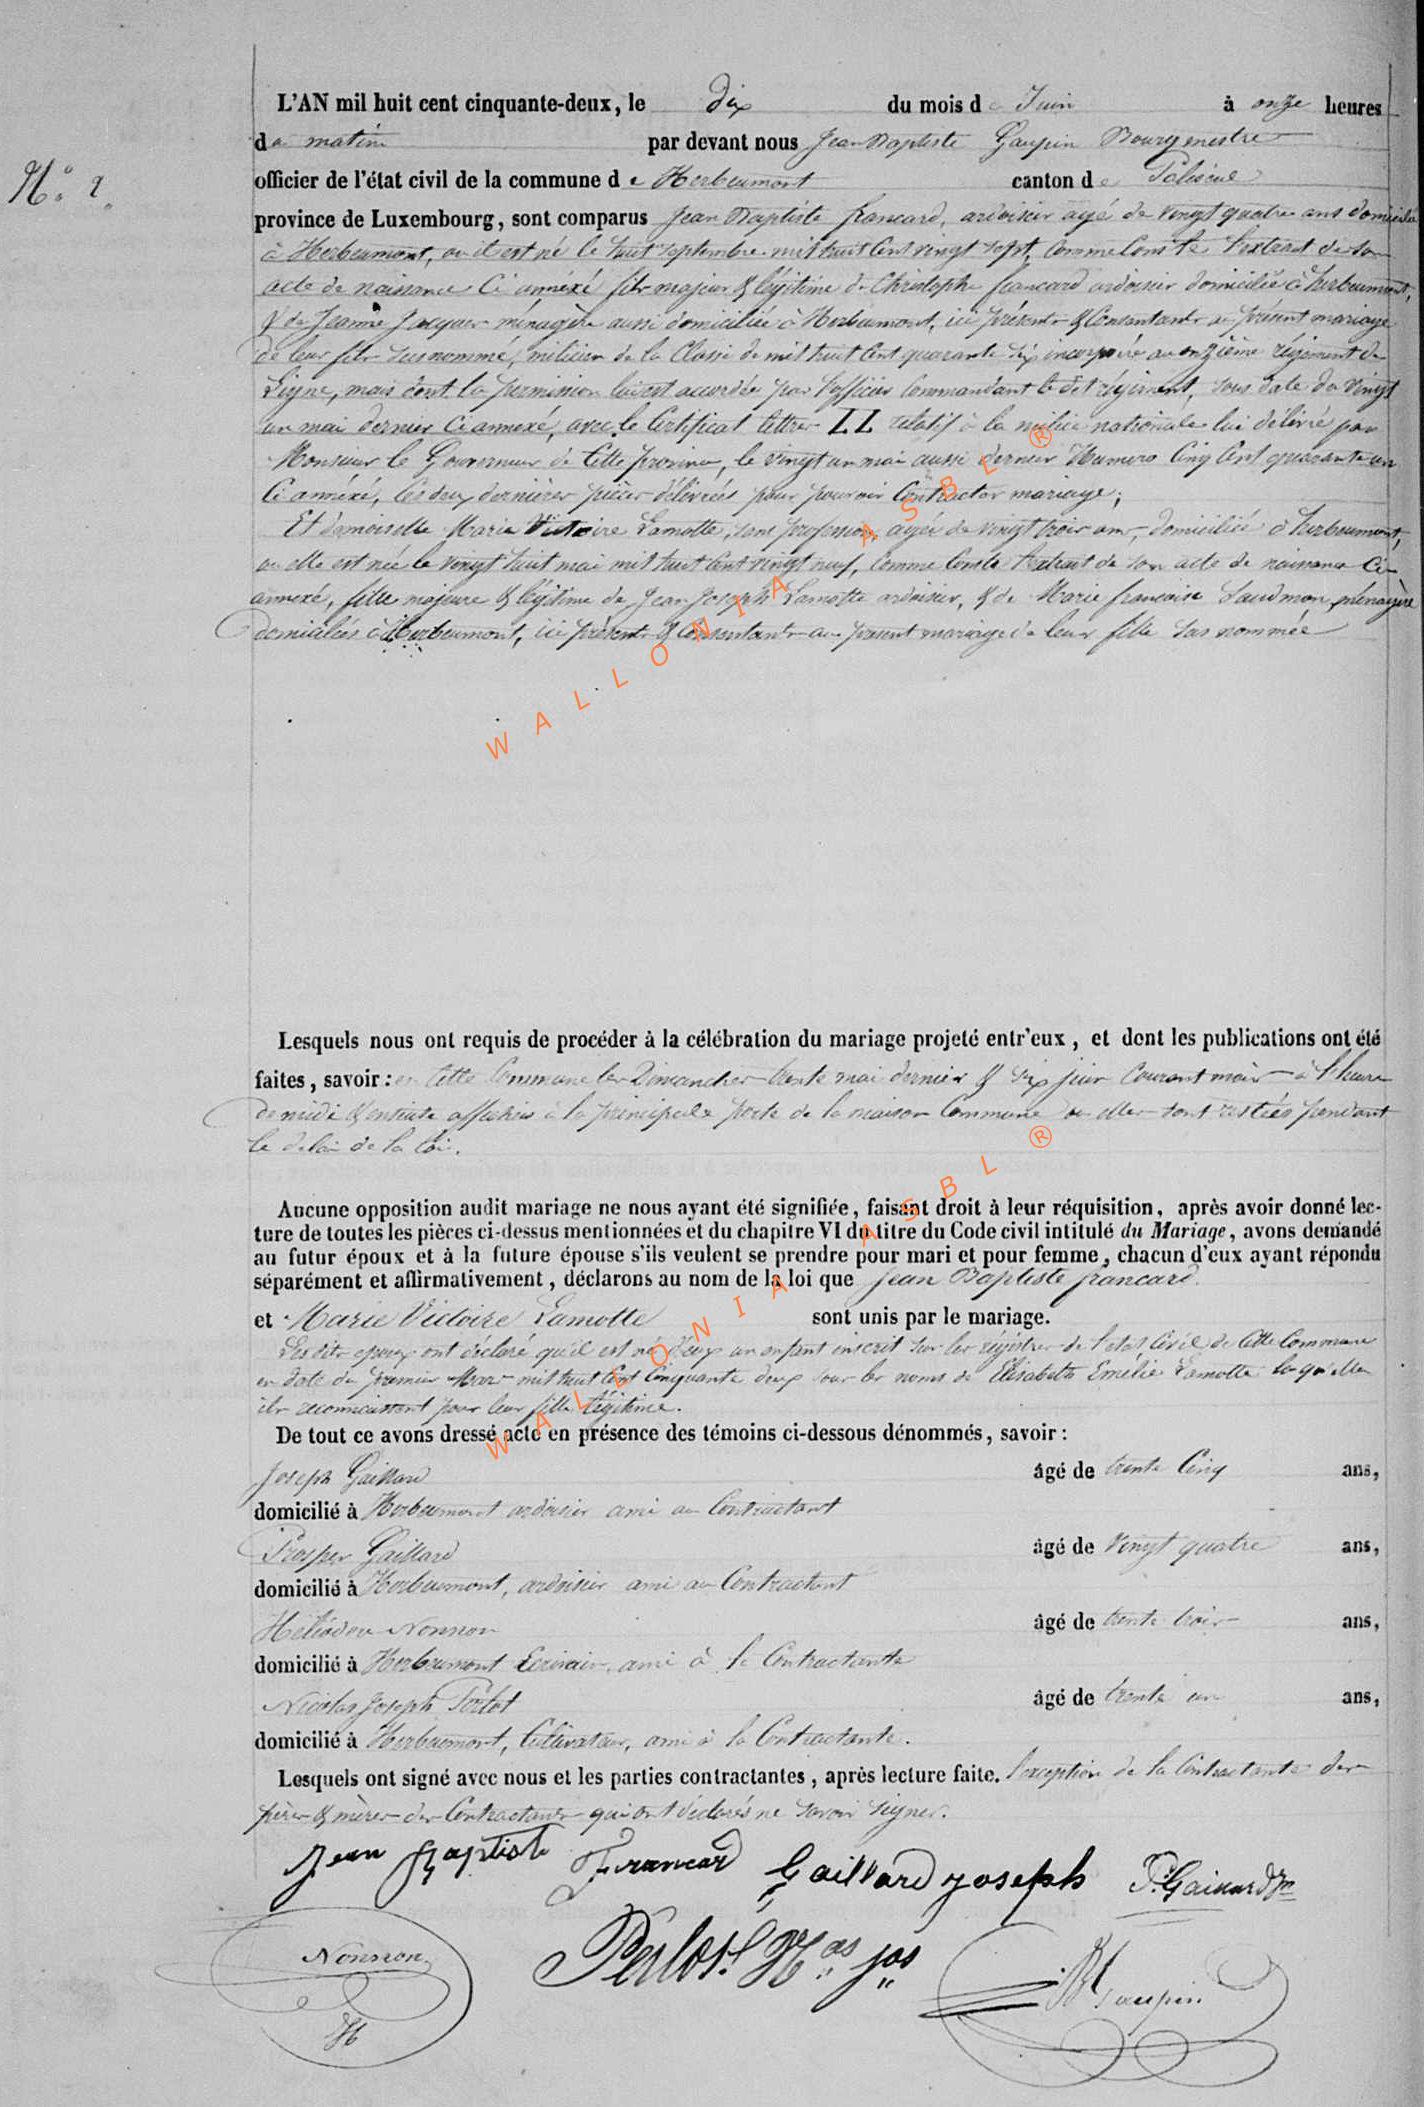 L'AN mil huit cent cinquante-deux, le dix du mois de Juin à onze heures
N° 2.
du matin par devant nous Jean Baptiste Gaupin Bourgmestre
officier de l'état civil de la commune de Herbeumont canton de Paliseul
province de Luxembourg, sont comparus Jean Baptiste francard, ardoisier agé de vingt quatre ans domicilié
à Herbeumont, ou il est né le huit septembre mil huit Cent vingt sept, comme Conste l'extrait de son
acte de naissance Ci annéxé fils majeur & légitime de Christophe francard ardoisier domicilié à herbeumont,
& de Jeanne Jacques ménagère aussi domiciliée à Herbeumont, ici présents & Consentants au présent mariage
de leur fils susnommé, milicien de la Classe de mil huit Cent quarante six incorporé au onzième régiment de
Ligne, mais dont la permission lui est accordée par l'officier Commandant le dit régiment, sous date du vingt
un mai dernier Ci annexé, avec le Certificat lettres LL relatif à la milice nationale lui délivré par
Monsieur le Gouverneur de Cette province, le vingt un mai aussi dernier Numéro Cinq Cent quarante un
Ci annéxé, les deux dernières pièces délivrées pour pouvoir Contracter mariage;
Et demoiselle Marie Victoire Lamotte, sans profession, agée de vingt trois ans, domiciliée à herbeumont,
ou elle est née le vingt huit mai mil huit Cent vingt neuf, Comme Conste l'extrait de son acte de naissance Ci
annexé, fille majeure & légitime de Jean Joseph Lamotte ardoisier, & de Marie francoise Laudmon ménagère
domiciliés à Herbeumont, ici présents & Consentants au present mariage de leur fille sus nommée
Lesquels nous ont requis de procéder à la célébration du mariage projeté entr'eux, et dont les publications ont été
faites, savoir: en Cette Commune les Dimanches trente mai dernier & six juin Courant mois à l'heure
de midi & ensuite affichées à la principale porte de la maison Commune ou elles sont restées pendant
le delai de la loi.
Aucune opposition audit mariage ne nous ayant été signifiée, faisant droit à leur réquisition, après avoir donné lec-
ture de toutes les pièces ci-dessus mentionnées et du chapitre VI du titre du Code civil intitulé du Mariage, avons demandé
au futur époux et à la future épouse s'ils veulent se prendre pour mari et pour femme, chacun d'eux ayant répondu
séparément et affirmativement, déclarons au nom de la loi que Jean Baptiste francard
et Marie Victoire Lamotte sont unis par le mariage.
Les dits epoux ont déclaré qu'il est né d'eux un enfant inscrit sur les régistres de l'etat Civil de Cette Commune
en date du premier Mars mil huit Cent Cinquante deux sous les noms de Elisabeth Emélie Lamotte laquelle
ils reconnaissent pour leur fille légitime.
De tout ce avons dressé acte en présence des témoins ci-dessous dénommés, savoir:
Joseph Gaillard âgé de trente Cinq ans,
domicilié à Herbeumont ardoisier ami au Contractant
Prosper Gaillard âgé de vingt quatre ans,
domicilié à Herbeumont, ardoisier ami au Contractant
Héliodore Nonnon âgé de trente trois ans,
domicilié à Herbeumont Ecrivain, ami à la Contractante
Nicolas Joseph Perlot âgé de trente un ans,
domicilié à Herbeumont, Cultivateur, ami à la Contractante.
Lesquels ont signé avec nous et les parties contractantes, après lecture faite. l'exception de la Contractante des
pères & mères des Contractants qui ont déclarés ne savoir signer.
Jean Baptiste Francard Gaillard Joseph P. Gaillard
Nonnon H Perlot Nas jos JBt Gaupin
WALLONIA ASBL ®
WALLONIA ASBL ®